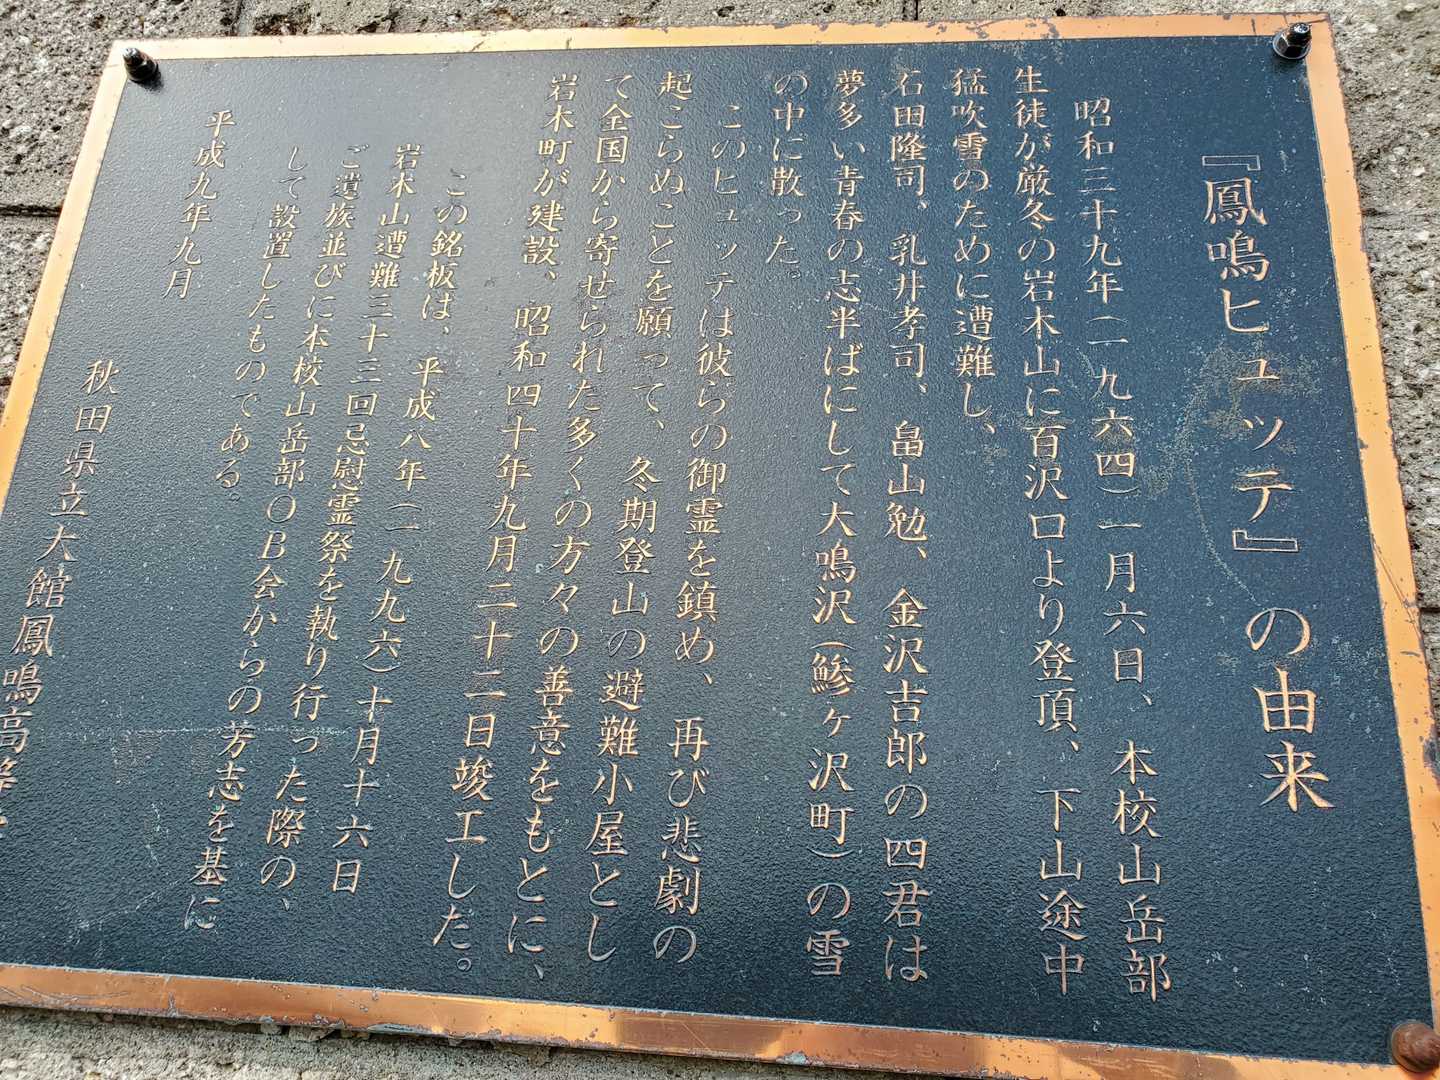 『鳳鳴ヒュッテ』の由来
昭和三十九年(一九六四)一月六日、本校山岳部
生徒が厳冬の岩木山に百沢口より登頂、下山途中
猛吹雪のために遭難し、
石田隆司、乳井孝司、畠山勉、金沢吉郎の四君は
夢多い青春の志半ばにして大鳴沢(鯵ヶ沢町)の雪
の中に散った。
このヒュッテは彼らの御霊を鎮め、再び悲劇の
起こらぬことを願って、冬期登山の避難小屋とし
て全国から寄せられた多くの方々の善意をもとに、
岩木町が建設、昭和四十年九月二十二日竣工した。
この銘板は、平成八年(一九九六)十月十六日
岩木山遭難三十三回忌慰霊祭を執り行った際の、
ご遺族並びに本校山岳部OB会からの芳志を基に
して設置したものである。
平成九年九月
秋田県立大館鳳鳴高等